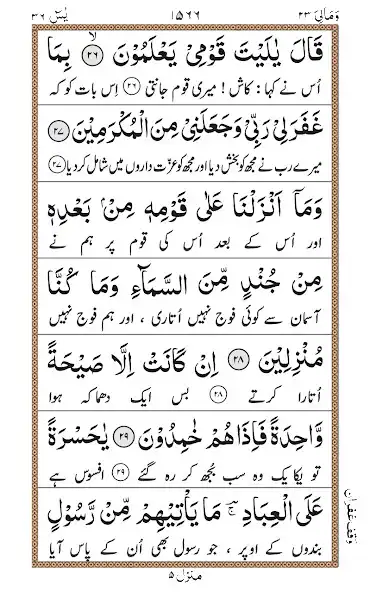 وَمَالِىَ ٢٣
١٥٦٦
يٰسٓ ٣٦
قَالَ يٰلَيْتَ قَوْمِىْ يَعْلَمُوْنَ ۙ ﴿٢٦﴾ بِمَا
اُس نے کہا : کاش ! میری قوم جانتی ﴿٢٦﴾ اِس بات کو کہ
غَفَرَلِىْ رَبِّىْ وَجَعَلَنِىْ مِنَ الْمُكْرَمِيْنَ ﴿٢٧﴾
میرے رب نے مجھ کو بخش دیا اور مجھ کو عزّت داروں میں شامل کر دیا ﴿٢٧﴾
وَمَاۤ اَنْزَلْنَا عَلٰى قَوْمِهٖ مِنْۢ بَعْدِهٖ
اور اُس کے بعد اُس کی قوم پر ہم نے
مِنْ جُنْدٍ مِّنَ السَّمَآءِ وَمَا كُنَّا
آسمان سے کوئی فوج نہیں اُتاری ، اور ہم فوج نہیں
مُنْزِلِيْنَ ﴿٢٨﴾ اِنْ كَانَتْ اِلَّا صَيْحَةً
اُتارا کرتے ﴿٢٨﴾ بس ایک دھماکہ ہوا
وَّاحِدَةً فَاِذَا هُمْ خٰمِدُوْنَ ﴿٢٩﴾ يٰحَسْرَةً
تو یکایک وہ سب بُجھ کر رہ گئے ﴿٢٩﴾ افسوس ہے
عَلَى الْعِبَادِ ۚ مَا يَاْتِيْهِمْ مِّنْ رَّسُوْلٍ
بندوں کے اوپر ، جو رسول بھی اُن کے پاس آیا
وقف غفران
منزل ٥